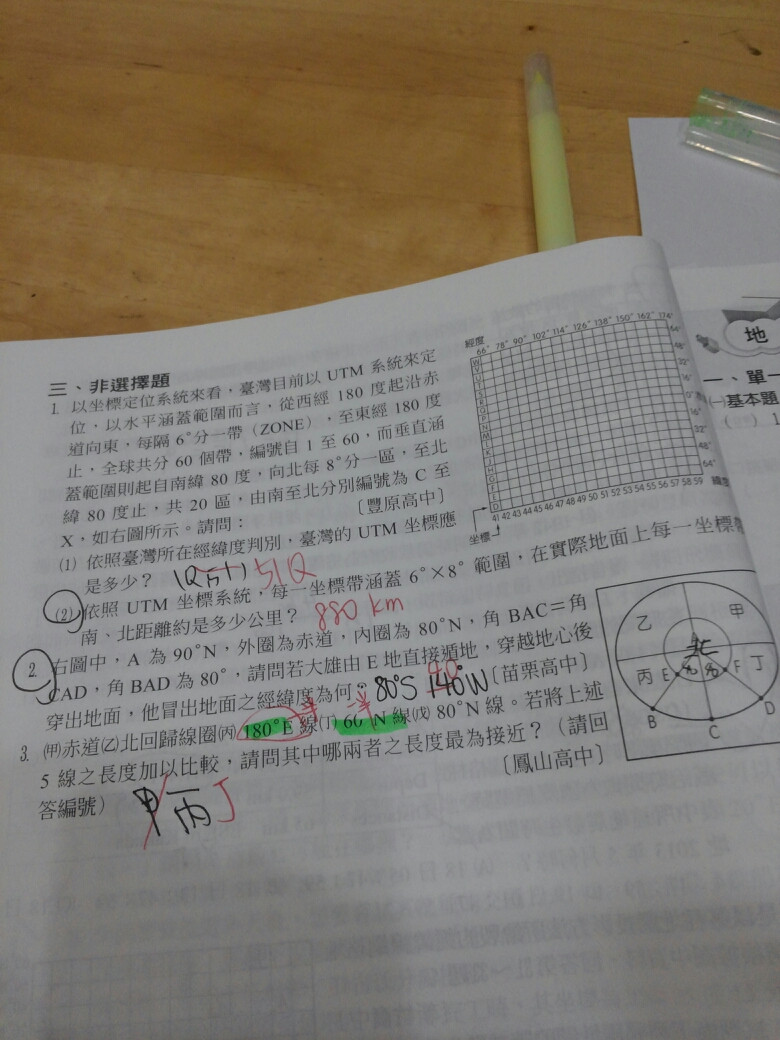 三、非選擇題
1. 以坐標定位系統來看，臺灣目前以 UTM 系統來定
位，以水平涵蓋範圍而言，從西經 180 度起沿赤
道向東，每隔 6°分一帶（ZONE），至東經 180 度
止，全球共分 60 個帶，編號自 1 至 60，而垂直涵
蓋範圍則起自南緯 80 度，向北每 8°分一區，至北
緯 80 度止，共 20 區，由南至北分別編號為 C 至
X，如右圖所示。請問：
〔豐原高中〕
(1) 依照臺灣所在經緯度判別，臺灣的 UTM 坐標應
是多少？ 51Q
(2) 依照 UTM 坐標系統，每一坐標帶涵蓋 6°×8° 範圍，在實際地面上每一坐標
南、北距離約是多少公里？ 880 km
2. 右圖中，A 為 90°N，外圈為赤道，內圈為 80°N，角 BAC＝角
CAD，角 BAD 為 80°，請問若大雄由 E 地直接遁地，穿越地心後
穿出地面，他冒出地面之經緯度為何？ 80°S 140°W〔苗栗高中〕
3. ㈙赤道㈚北回歸線圈㈛ 180°E 線㈜ 60°N 線㈝ 80°N 線。若將上述
5 線之長度加以比較，請問其中哪兩者之長度最為接近？（請回
答編號）
〔鳳山高中〕
甲 丙 丁
經度
66° 78° 90° 102° 114° 126° 138° 150° 162° 174°
64°
48°
32°
16°
0°
16°
32°
48°
64°
41 42 43 44 45 46 47 48 49 50 51 52 53 54 55 56 57 58 59
坐標
乙 甲
丙 E F 丁
B C D
地
一、單一
㈠基本題